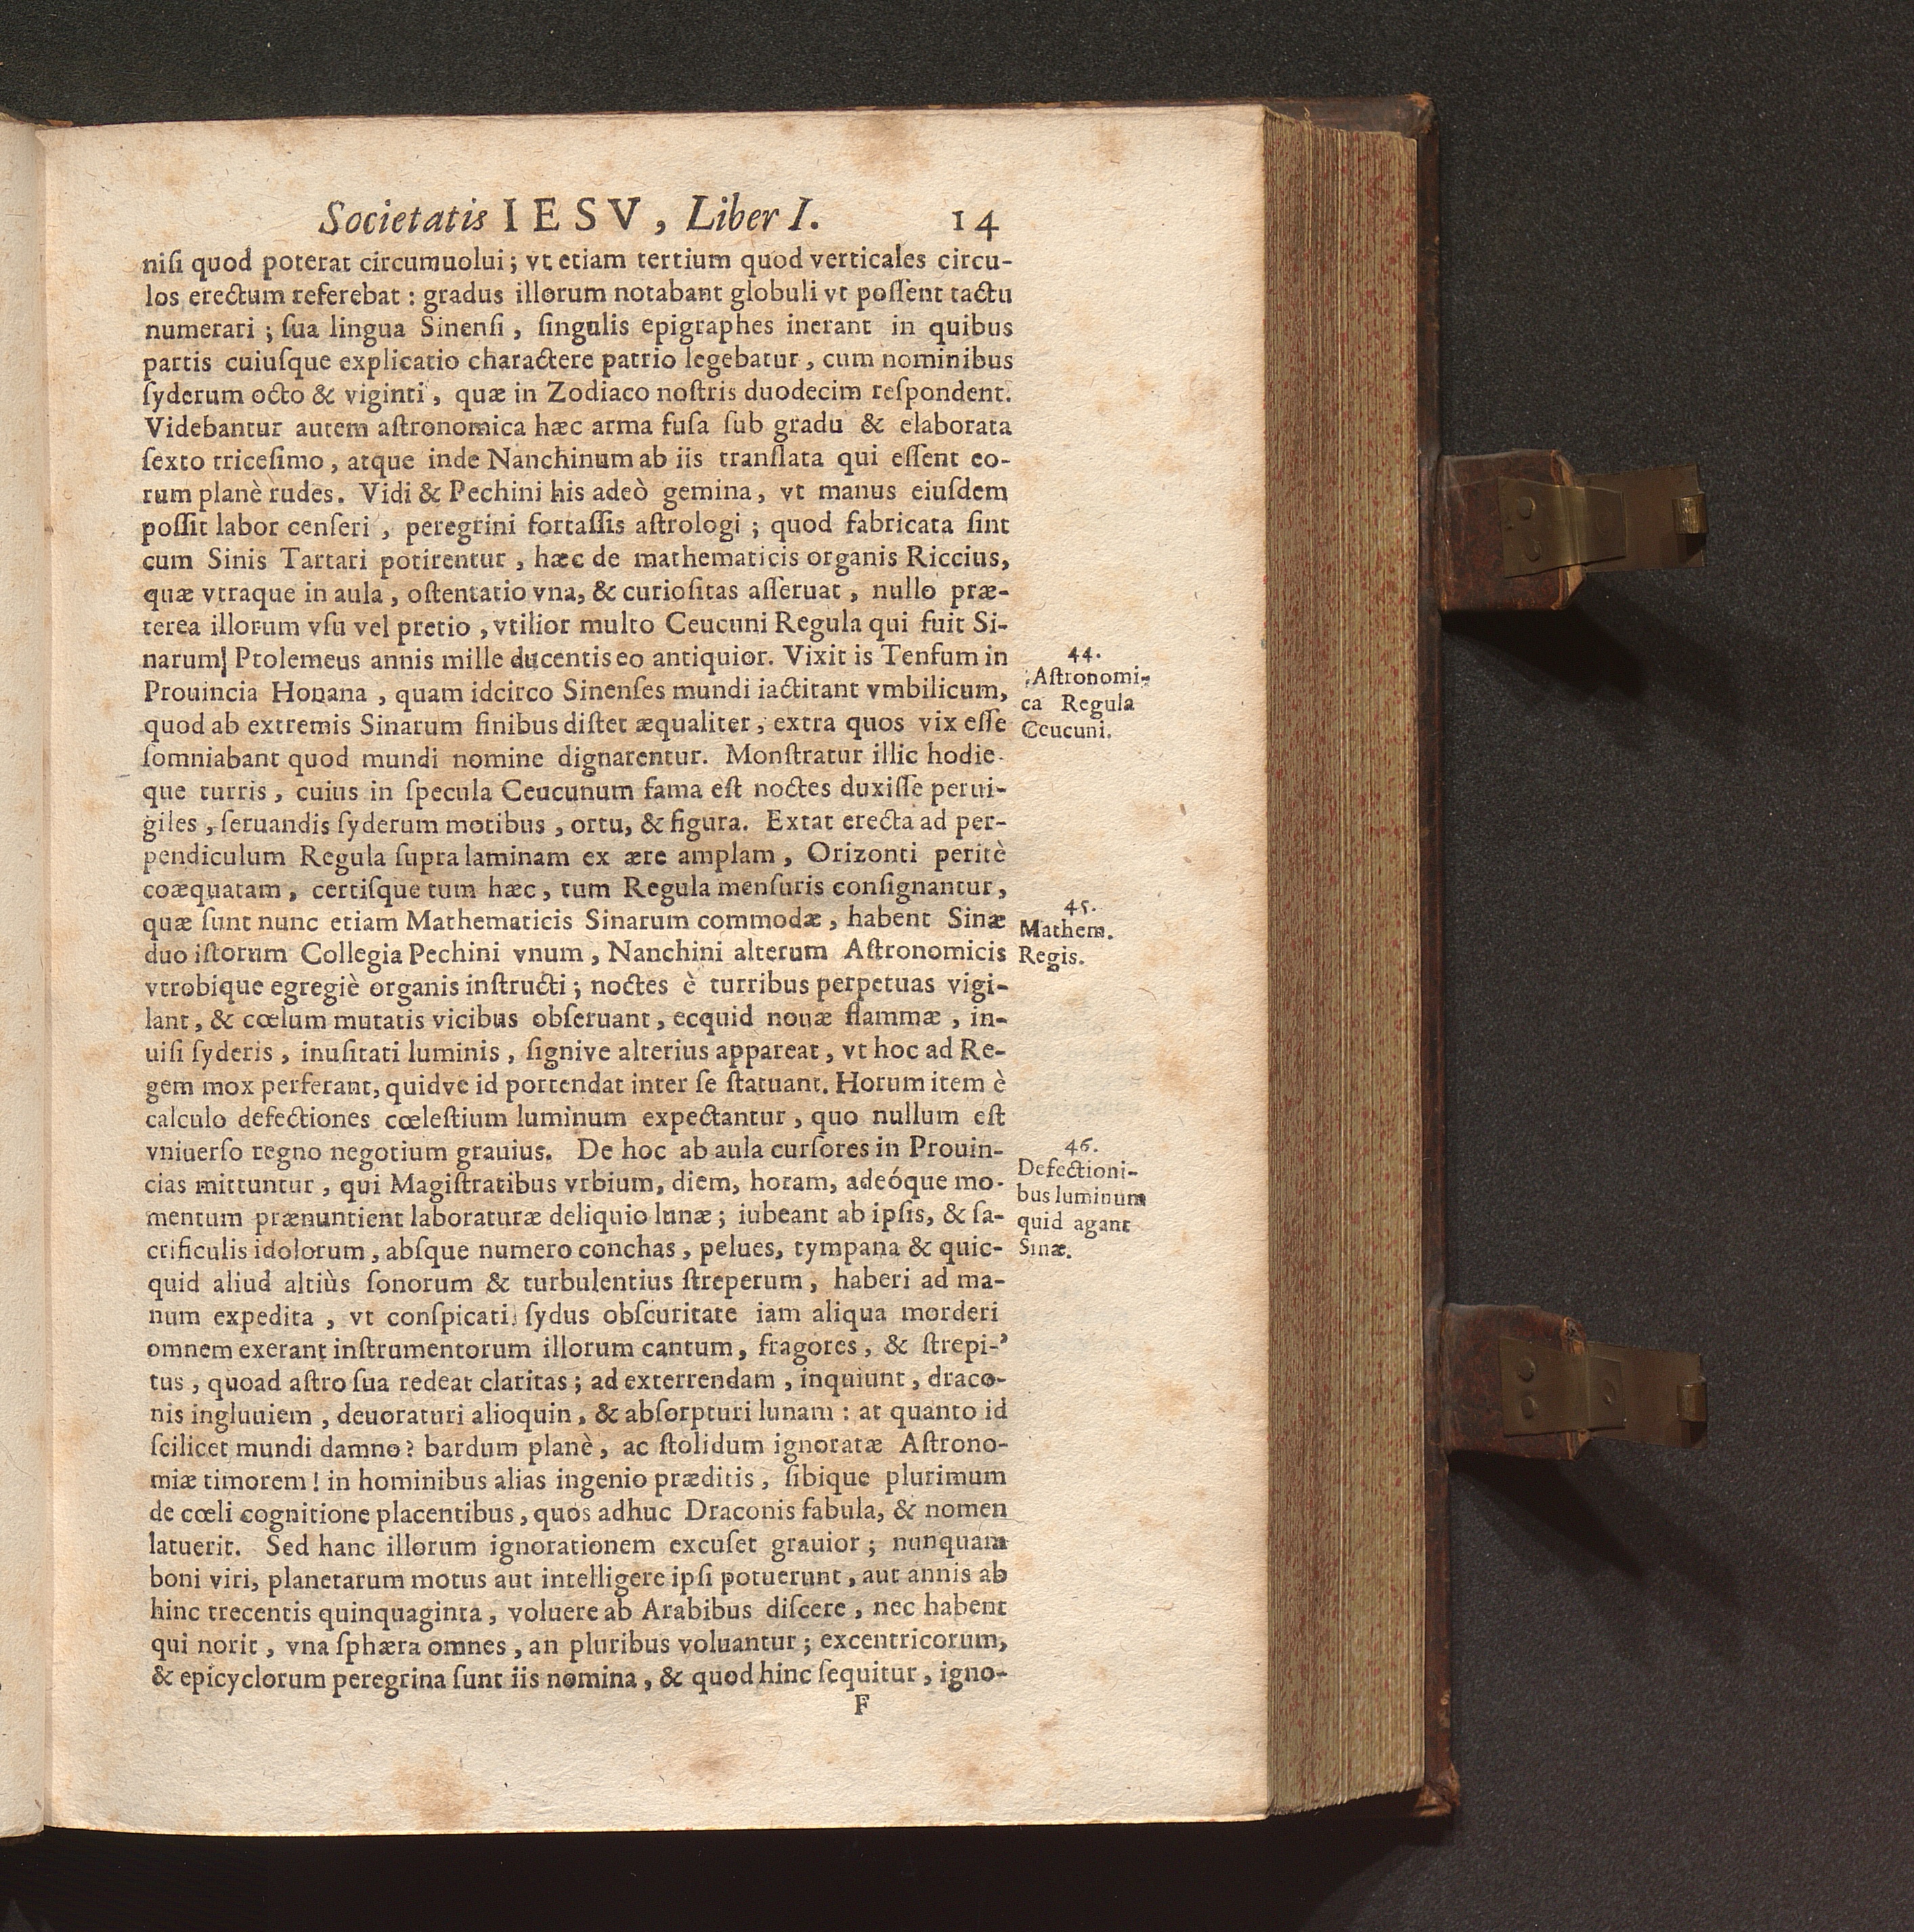 Societatis IESV, Liber I. 14
niſi quod poterat circumuolui; vt etiam tertium quod verticales circu-
los erectum referebat: gradus illorum notabant globuli vt poſſent tactu
numerari; ſua lingua Sinenſi, ſingulis epigraphes inerant in quibus
partis cuiuſque explicatio charactere patrio legebatur, cum nominibus
ſyderum octo & viginti, quæ in Zodiaco noſtris duodecim reſpondent.
Videbantur autem aſtronomica hæc arma fuſa ſub gradu & elaborata
ſexto triceſimo, atque inde Nanchinum ab iis tranſlata qui eſſent eo-
rum planè rudes. Vidi & Pechini his adeò gemina, vt manus eiuſdem
poſſit labor cenſeri, peregrini fortaſſis aſtrologi; quod fabricata ſint
cum Sinis Tartari potirentur, hæc de mathematicis organis Riccius,
quæ vtraque in aula, oſtentatio vna, & curioſitas aſſeruat, nullo præ-
terea illorum vſu vel pretio, vtilior multo Ceucuni Regula qui fuit Si-
narum Ptolemeus annis mille ducentis eo antiquior. Vixit is Tenfum in
Prouincia Honana, quam idcirco Sinenſes mundi iactitant vmbilicum,
quod ab extremis Sinarum finibus diſtet æqualiter, extra quos vix eſſe
ſomniabant quod mundi nomine dignarentur. Monſtratur illic hodie-
que turris, cuius in ſpecula Ceucunum fama eſt noctes duxiſſe perui-
giles, ſeruandis ſyderum motibus, ortu, & figura. Extat erecta ad per-
pendiculum Regula ſupra laminam ex ære amplam, Orizonti peritè
coæquatam, certiſque tum hæc, tum Regula menſuris conſignantur,
quæ ſunt nunc etiam Mathematicis Sinarum commodæ, habent Sinæ
duo iſtorum Collegia Pechini vnum, Nanchini alterum Aſtronomicis
vtrobique egregiè organis inſtructi; noctes è turribus perpetuas vigi-
lant, & cœlum mutatis vicibus obſeruant, ecquid nouæ flammæ, in-
uiſi ſyderis, inuſitati luminis, ſignive alterius appareat, vt hoc ad Re-
gem mox perferant, quidve id portendat inter ſe ſtatuant. Horum item è
calculo defectiones cœleſtium luminum expectantur, quo nullum eſt
vniuerſo regno negotium grauius. De hoc ab aula curſores in Prouin-
cias mittuntur, qui Magiſtratibus vrbium, diem, horam, adeóque mo-
mentum prænuntient laboraturæ deliquio lunæ; iubeant ab ipſis, & ſa-
crificulis idolorum, abſque numero conchas, pelues, tympana & quic-
quid aliud altiùs ſonorum & turbulentius ſtreperum, haberi ad ma-
num expedita, vt conſpicati ſydus obſcuritate iam aliqua morderi
omnem exerant inſtrumentorum illorum cantum, fragores, & ſtrepi-
tus, quoad aſtro ſua redeat claritas; ad exterrendam, inquiunt, draco-
nis ingluuiem, deuoraturi alioquin, & abſorpturi lunam: at quanto id
ſcilicet mundi damno? bardum planè, ac ſtolidum ignoratæ Aſtrono-
miæ timorem! in hominibus alias ingenio præditis, ſibique plurimum
de cœli cognitione placentibus, quos adhuc Draconis fabula, & nomen
latuerit. Sed hanc illorum ignorationem excuſet grauior; nunquam
boni viri, planetarum motus aut intelligere ipſi potuerunt, aut annis ab
hinc trecentis quinquaginta, voluere ab Arabibus diſcere, nec habent
qui norit, vna ſphæra omnes, an pluribus voluantur; excentricorum,
& epicyclorum peregrina ſunt iis nomina, & quod hinc ſequitur, igno-
F
44.
Aſtronomi-
ca Regula
Ceucuni.
45.
Mathem.
Regis.
46.
Defectioni-
bus luminum
quid agant
Sinæ.